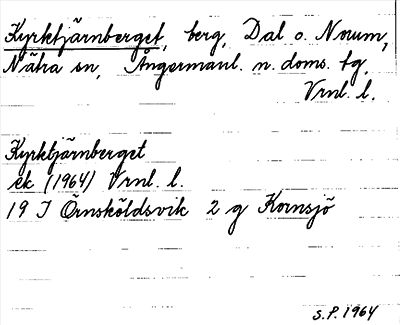 Kyrktjärnberget, berg, Dal o. Norum,
Nätra sn, Ångermanl. n. doms. tg.
Vrnl. l.
Kyrktjärnberget
ek (1964) Vrnl. l.
19 J Örnsköldsvik 2 g Kornsjö
S.P. 1964